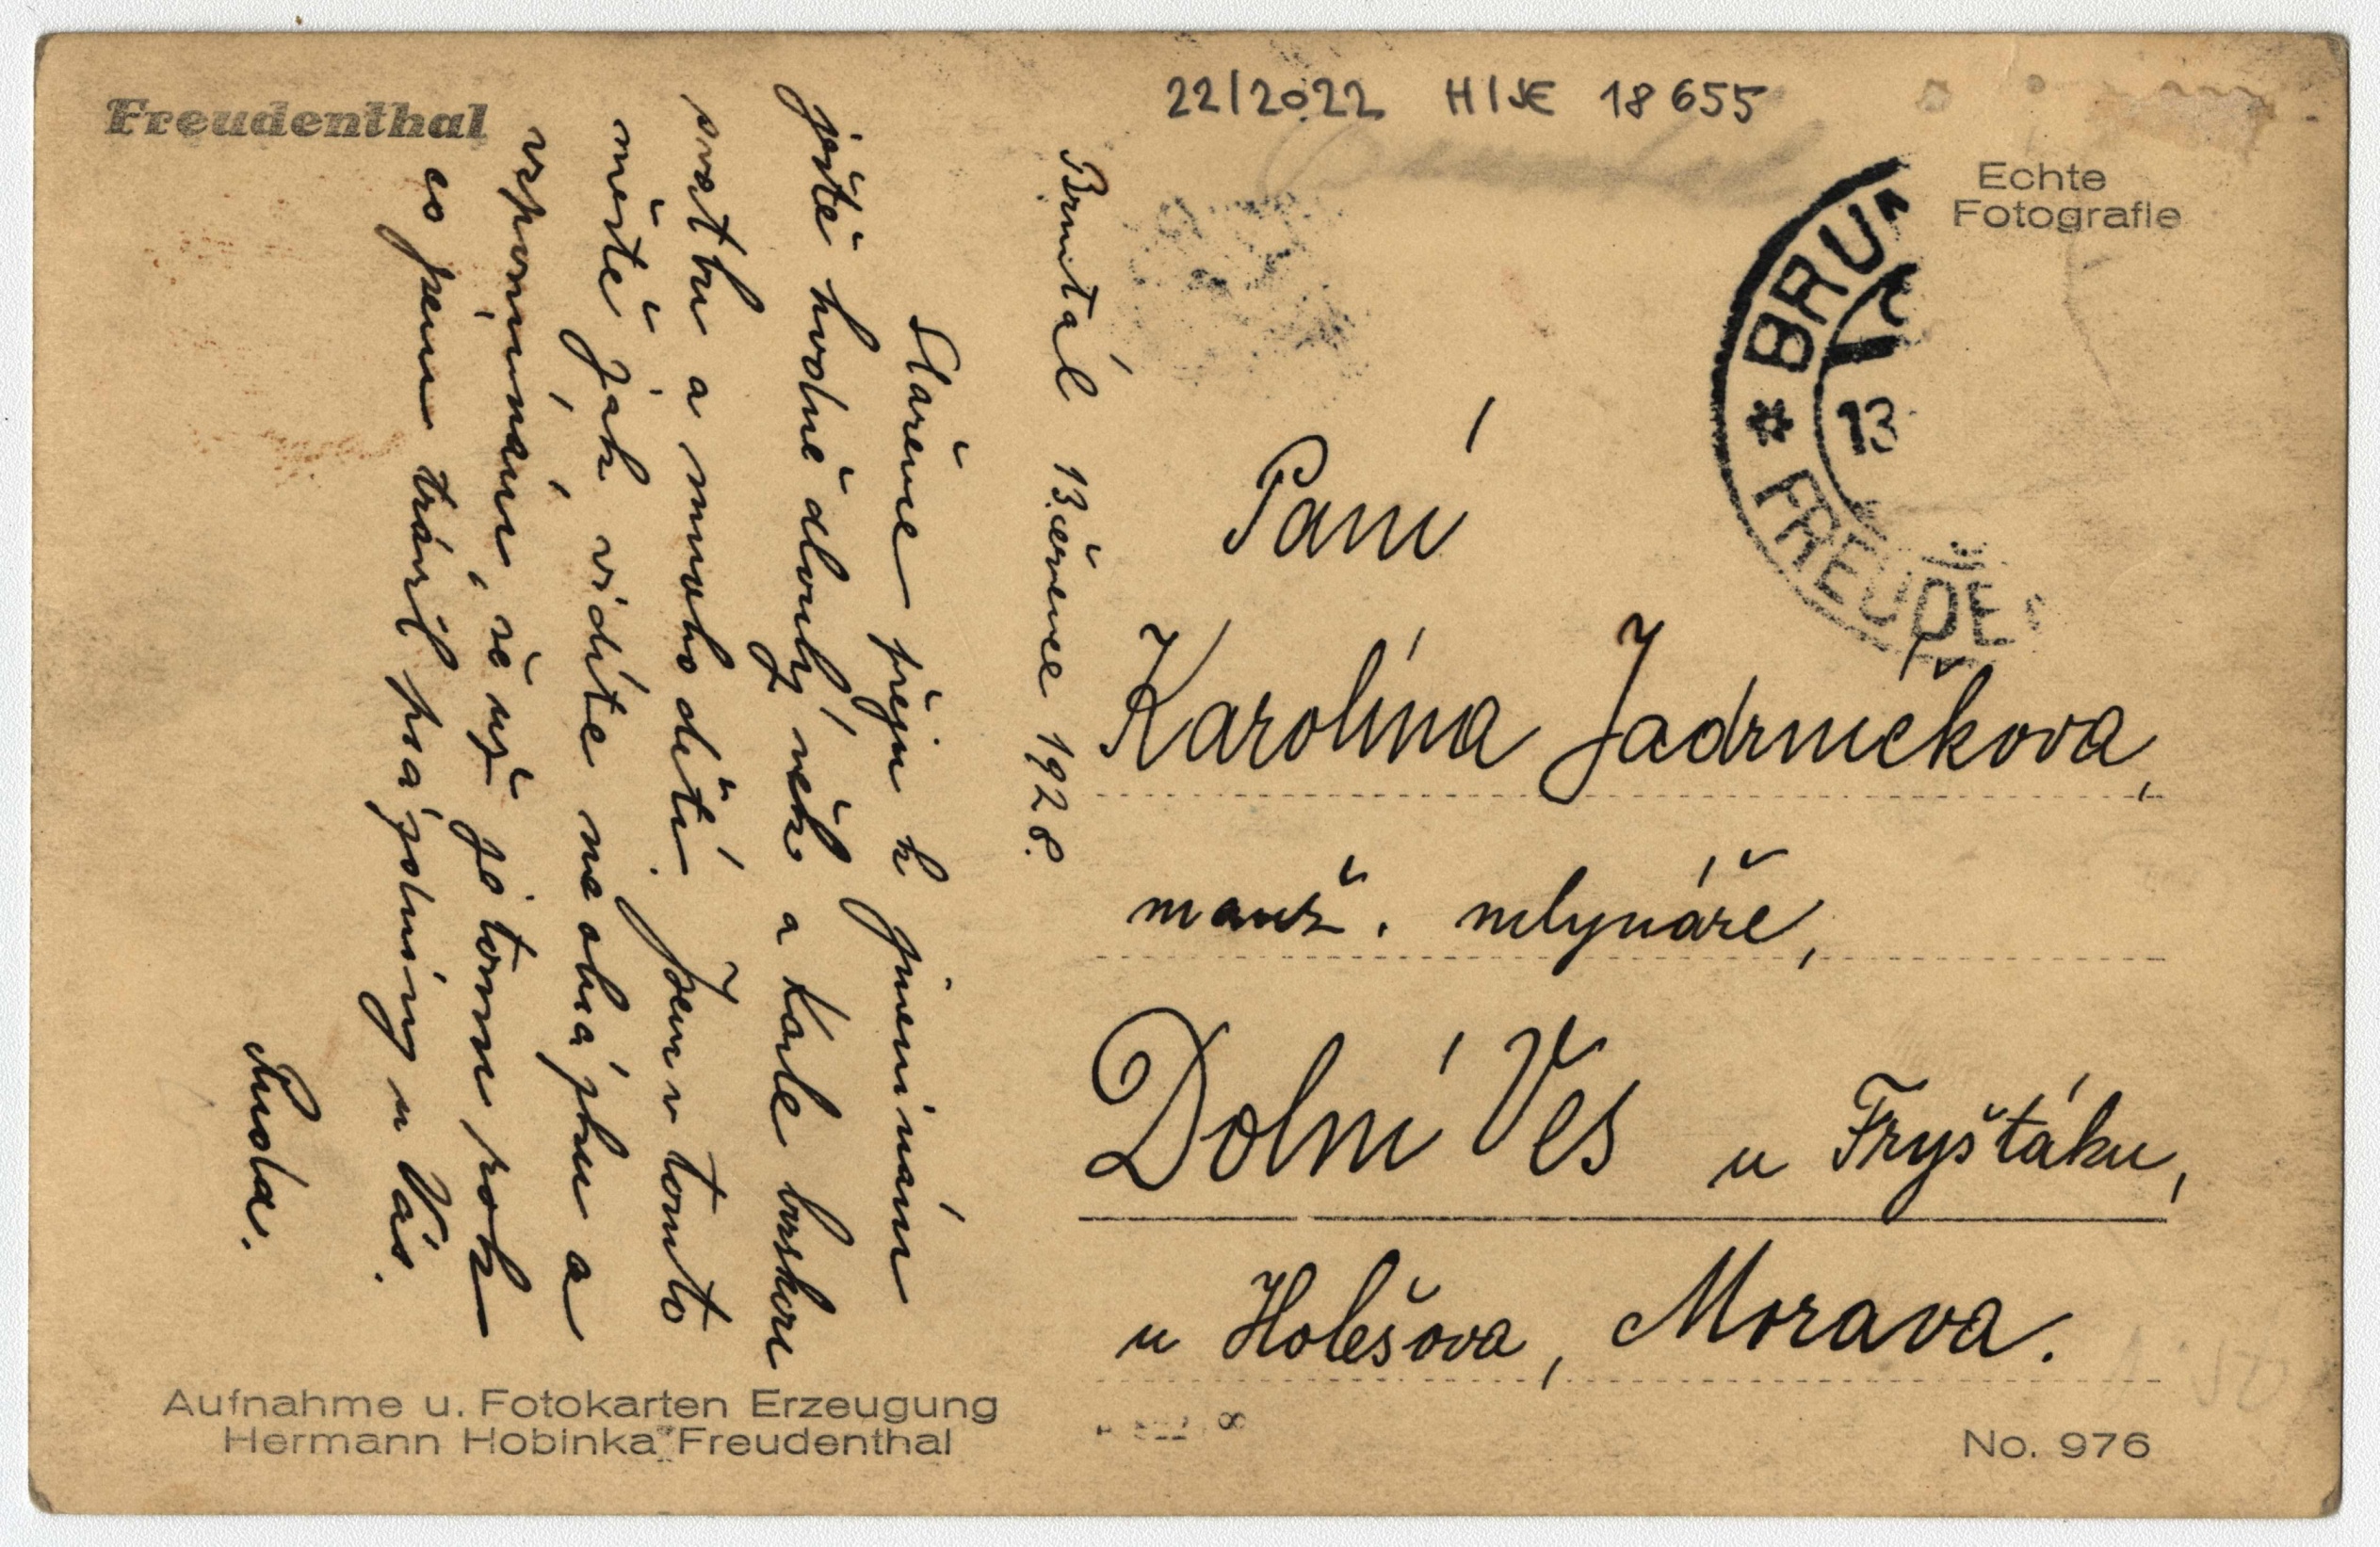 Freudenthal
22/2022 H/JE 18 655
Echte
Fotografie
BRUN
13
* FREUDE
Bruntál 13. července 1928.
Stařence přeju k jmeninám
ještě hodně dlouhý věk a Karle brskou
svatbu a mnoho dětí. Jsem v tomto
městě jak vidíte na obrázku a
vzpomínám, že už je tomu rok
co jsem trávil prázdniny u Vás.
Ruda.
Paní
Karolína Jadrníčkova,
manž. mlynáře,
Dolní Ves u Fryštáku,
u Holešova, Morava.
Aufnahme u. Fotokarten Erzeugung
Hermann Hobinka Freudenthal
No. 976